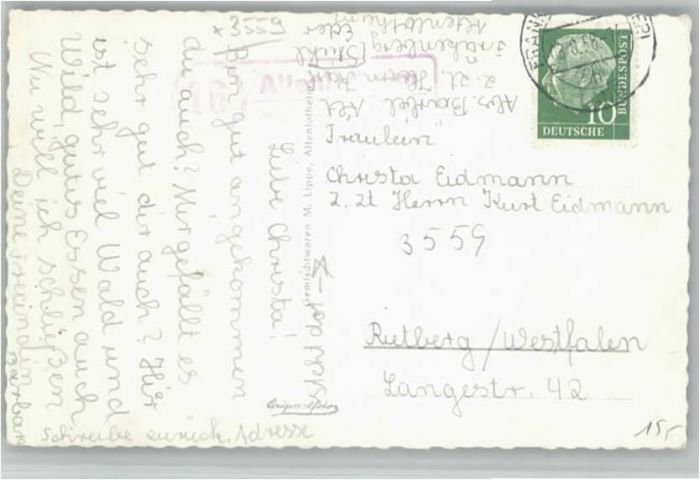 Liebe Christa!
Bin gut angekommen
du auch? Mir gefällt es
sehr gut dir auch? Hir
ist sehr viel Wald und
Wild, gutes Essen auch
Nu will ich schließen
Deine Freindin
Barbara
Schreibe zurück. Adresse
steht dort
x 3559
Abs. Bärbel Alt
z. Zt Herrn Karl
Frankenberg Eder
Altenlotheim
Gemischtwaren M. Lippe, Altenlotheim
Originalfoto
(16)
Fräulein
Christa Eidmann
z. Zt Herrn Kurt Eidmann
3559
Rietberg / Westfalen
Langestr. 42
10
DEUTSCHE
BUNDESPOST
15,-